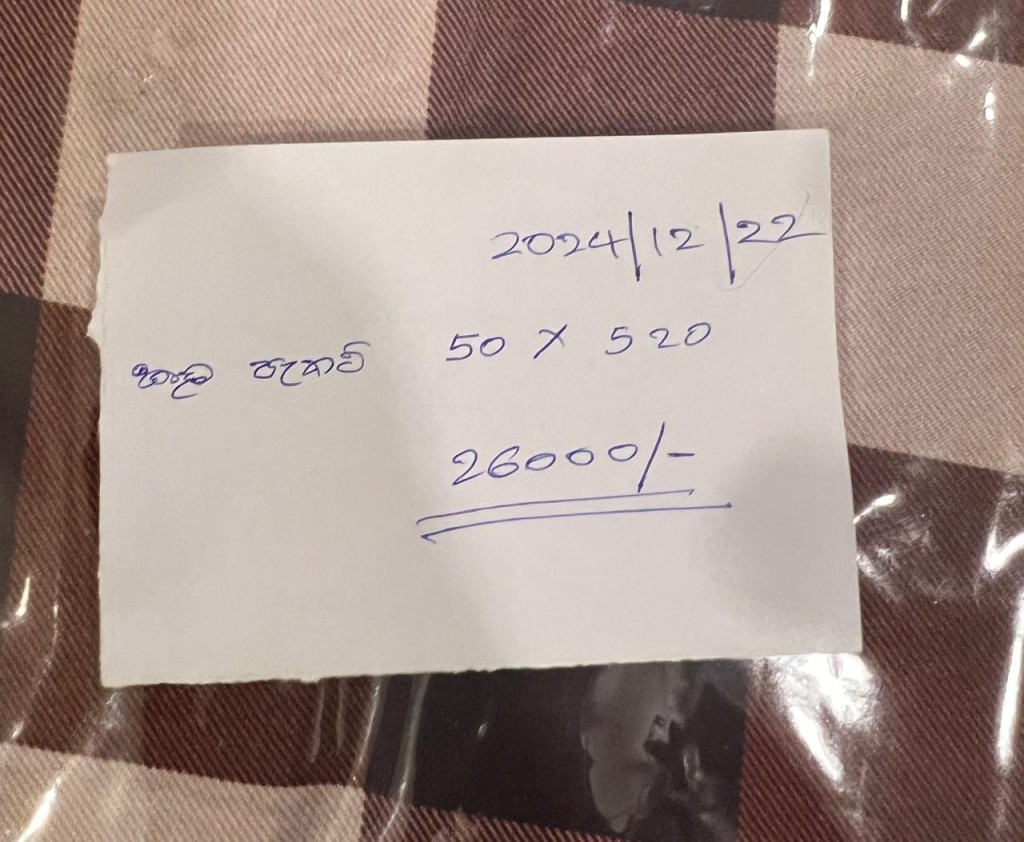 2024/12/22
කෑම පැකට් 50 x 520
26000/-